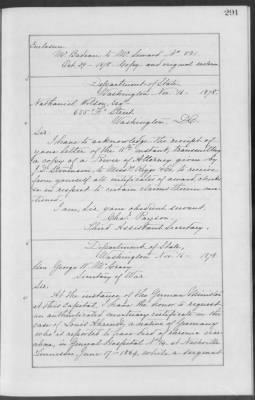 291
Enclosure
Mr. Badeau to Mr. Seward No
Oct 29 - 1878. Copy and original
Department of State,
Washington Nov. 16 - 1878.
Nathaniel Wilson, Esqr.
Street
Washington D.C.
Sir:
I have to acknowledge the receipt of
your letter of the instant, transmitting
a copy of a Power of Attorney given by
to Messrs. Riggs & Co. to receive
from yourself all certificates of award checks
&c in respect to certain claims therein men-
tioned.
I am, Sir, your obedient servant,
Chas. Payson,
Third Assistant Secretary.
Department of State,
Washington Nov. 16 - 1878
Hon George W. McCrary
Secretary of War
Sir:
At the instance of the German Minister
at this Capital, I have the honor to request
an authenticated mortuary certificate in the
case of Louis a native of Germany
who is reported to have died of chronic diar-
rhœa, in General Hospital No at Nashville
Tennessee June 17 - 1864, while a sergeant